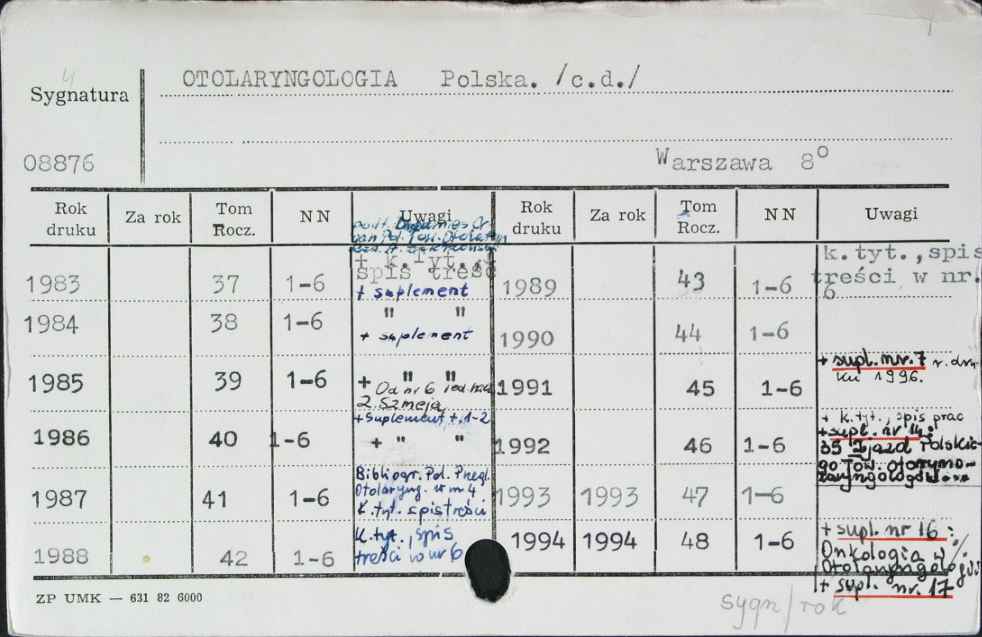 4
Sygnatura OTOLARYNGOLOGIA Polska. /c.d./
08876 Warszawa 8°
Rok druku Za rok Tom Rocz. NN Uwagi Rok druku Za rok Tom Rocz. NN Uwagi
+ k.tyt.,
spis treśc
1983 37 1-6 + suplement 1989 43 1-6 k.tyt.,spis
treści w nr.
6
1984 38 1-6 " "
+ suplement 1990 44 1-6
1985 39 1-6 + " "
Od nr 6
Z. Szmeja
+ suplement + 1-2 1991 45 1-6 + supl. nr. 7 r. dru-
ku 1996.
1986 40 1-6 + " " 1992 46 1-6 + k.tyt., spis prac
+ supl. nr 14:
35 Zjazd Polskie-
go Tow. otorymo-
laryngologów...
1987 41 1-6 Bibliogr. Pol. Piegl.
Otolaryng. w nr 4
K.tyt. spis treści 1993 1993 47 1-6
1988 42 1-6 K.tyt., spis
treści w nr 6 1994 1994 48 1-6 + supl. nr 16:
Onkologia w
Otolaryngologii
+ supl. nr. 17
ZP UMK — 631 82 6000
sygn/rok